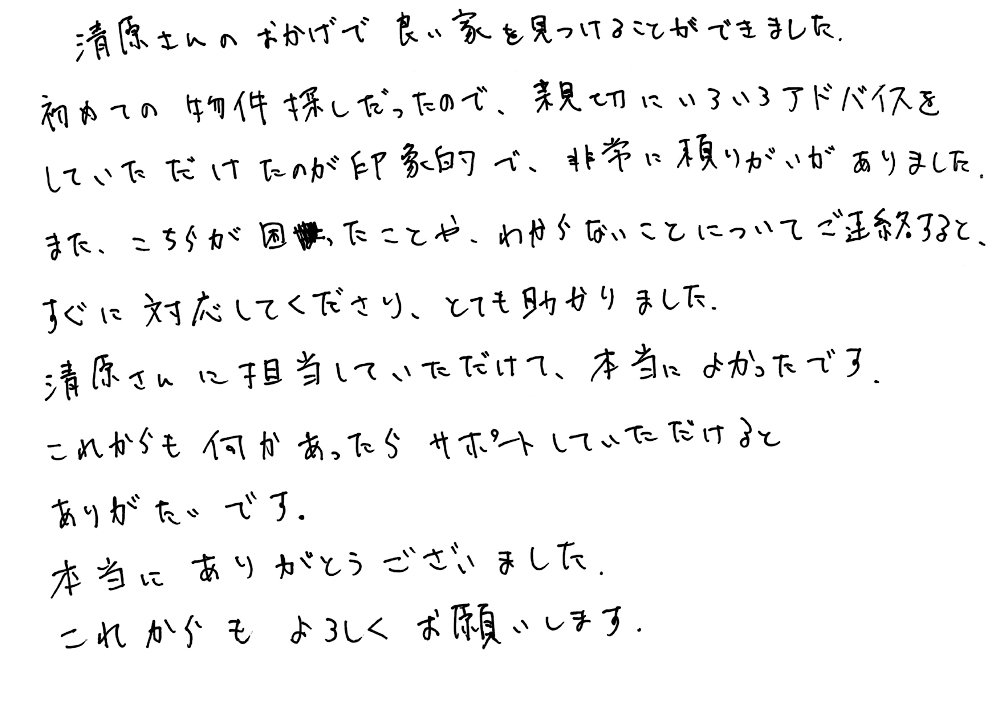 清原さんのおかげで良い家を見つけることができました.
初めての物件探しだったので、親切にいろいろアドバイスを
していただけたのが印象的で、非常に頼りがいがありました.
また、こちらが困ったことや、わからないことについてご連絡すると、
すぐに対応してくださり、とても助かりました.
清原さんに担当していただけて、本当によかったです.
これからも何かあったらサポートしていただけると
ありがたいです.
本当にありがとうございました.
これからもよろしくお願いします.